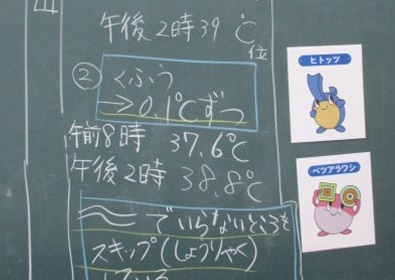 午後2時39℃
位
② くふう
→0.1℃ずつ
午前8時 37.6℃
午後2時 38.8℃
〜でいらないところを
スキップ(しょうりゃく)
している
ヒトッツ
ベツアラワシ